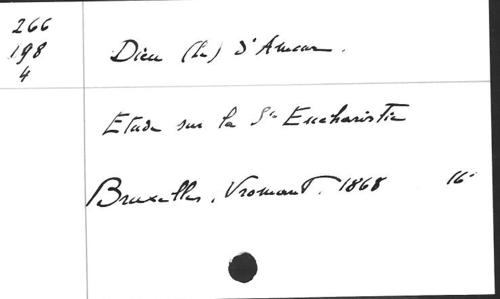 266
198
4
Dieu (le) d'Amour.
Etude sur la Ste Eucharistie
Bruxelles, Vromant. 1868 16°